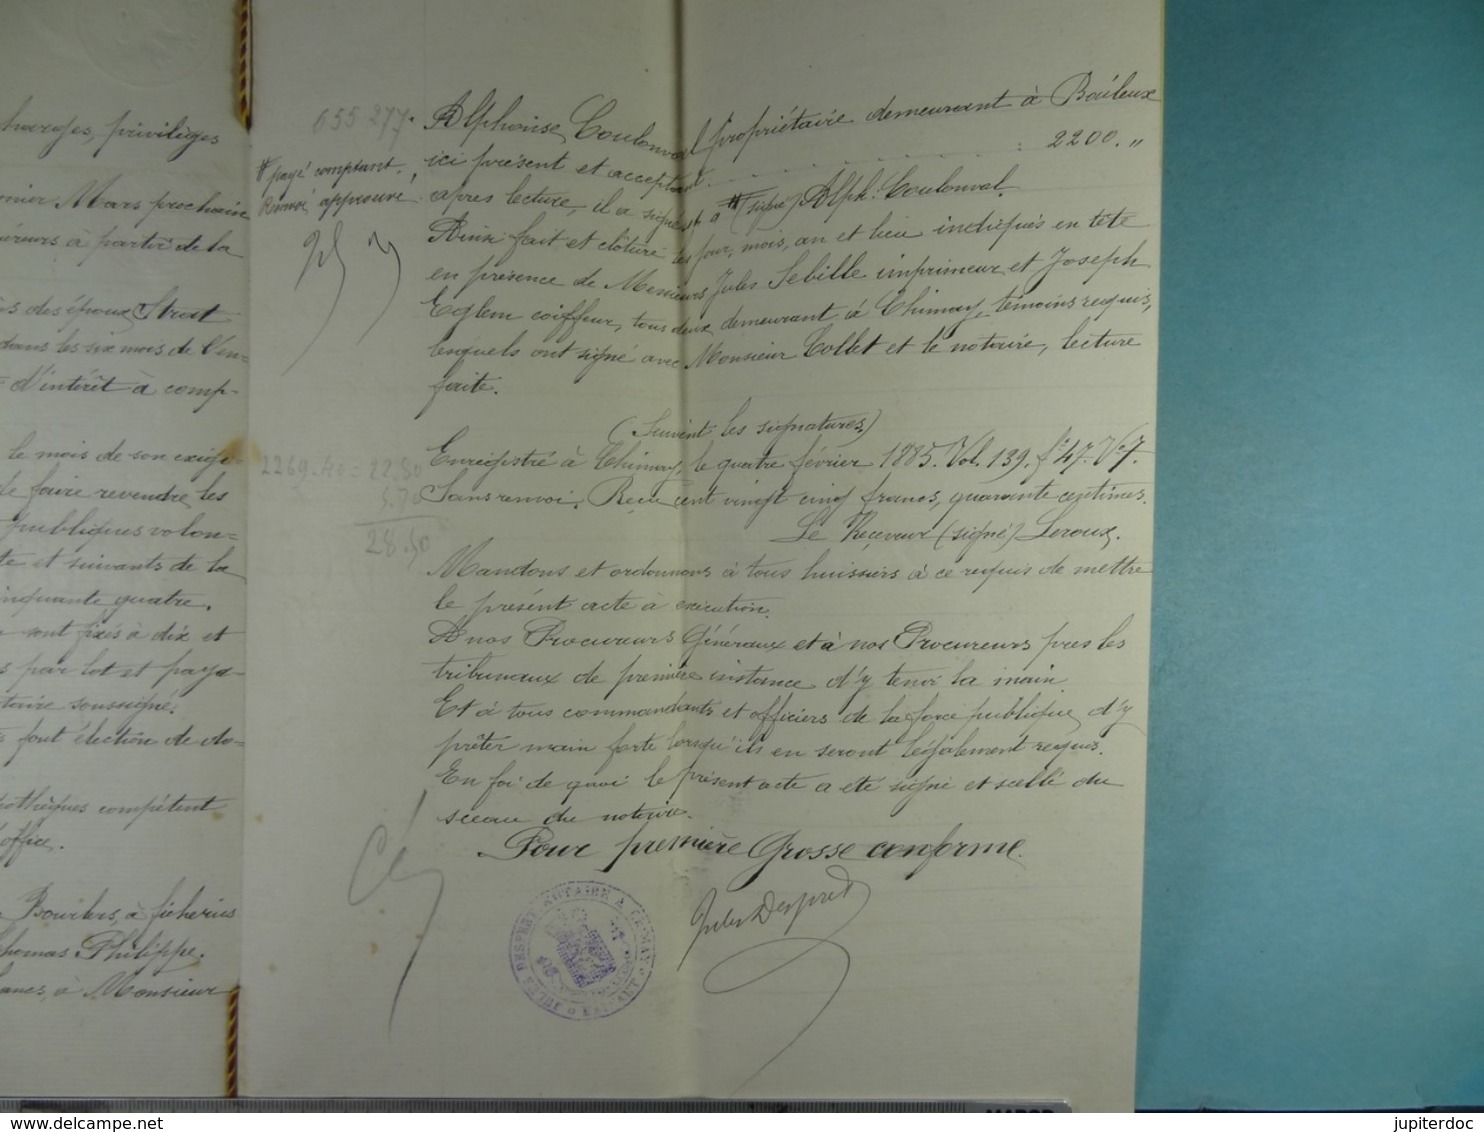 harges, privilèges
Mars prochain
à partir de la
des époux Strat
dans les six mois de l'en=
d'intérêt à comp-
le mois de son exige=
faire revendre les
publiques volon=
et suivants de la
inquante quatre.
sont fixés à dix et
par lot et paya-
taire soussigné.
font élection de do=
pothèques compétent
office.
Philippe.
à Monsieur
655 277.
# payé comptant.
Renvoi approuvé
Alphonse Coulonval propriétaire demeurant à Baileux
ici présent et acceptant. 2200. "
après lecture, il a signé et a # (signé) Alph. Coulonval.
Ainsi fait et clôturé les jour, mois, an et lieu indiqués en tête
en présence de Messieurs Jules Sebille imprimeur et Joseph
Eglem coiffeur, tous deux demeurant à Chimay, témoins requis,
lesquels ont signé avec Monsieur Collet et le notaire, lecture
faite.
(Suivent les signatures)
Enregistré à Chimay, le quatre février 1885. Vol. 139. f° 47. V° 7.
Sans renvoi. Reçu cent vingt cinq francs, quarante centimes.
Le Receveur (signé) Leroux.
2269.40 = 22.80
5.70
28.50
Mandons et ordonnons à tous huissiers à ce requis de mettre
le présent acte à exécution.
A nos Procureurs Généraux et à nos Procureurs près les
tribunaux de première instance d'y tenir la main
Et à tous commandants et officiers de la force publique d'y
prêter main forte lorsqu'ils en seront légalement requis.
En foi de quoi le présent acte a été signé et scellé du
sceau du notaire.
Pour première Grosse conforme.
Jules Despret
DESPRET NOTAIRE A CHIMAY
jupiterdoc
delcampe.net